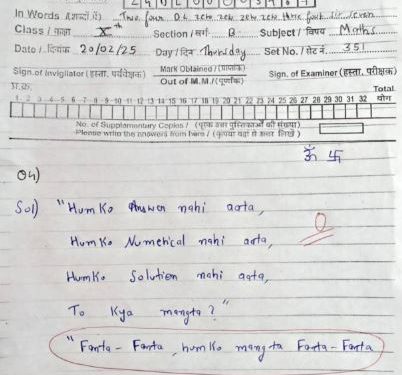 In Words
Two four D.L zero zero zero zero three four six/seven
Class / कक्षा Xth Section / वर्ग B Subject / विषय Maths
Date / दिनांक 20/02/25 Day / दिन Thursday Set No. / सेट नं. 351
Sign. of Invigilator (हस्ता. पर्यवेक्षक) Mark Obtained / (प्राप्तांक) Sign. of Examiner (हस्ता. परीक्षक)
Out of M.M./(पूर्णांक)
प्र.क्र. Total
1 2 3 4 5 6 7 8 9 10 11 12 13 14 15 16 17 18 19 20 21 22 23 24 25 26 27 28 29 30 31 32 योग
No. of Supplementary Copies / (पूरक उत्तर पुस्तिकाओं की संख्या)
Please write the answers from here / (कृपया यहां से उत्तर लिखें)
ॐ 卐
Q4)
Sol) "Humko Answer nahi aata,
0
Humko Numerical nahi aata,
Humko Solution nahi aata,
To Kya mangta?"
"Fanta - Fanta, humko mangta Fanta - Fanta